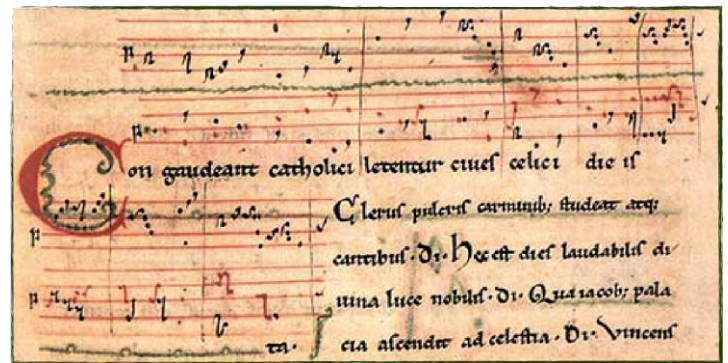 Con gaudeant catholici letentur ciues celici die is
ta·
Clerus pulcris carminib; studeat atq;
cantibus · Di · Hec est dies laudabilis di
uina luce nobilis · Di · Qua iacob; pala
cia ascendit ad celestia · Di · Vincens